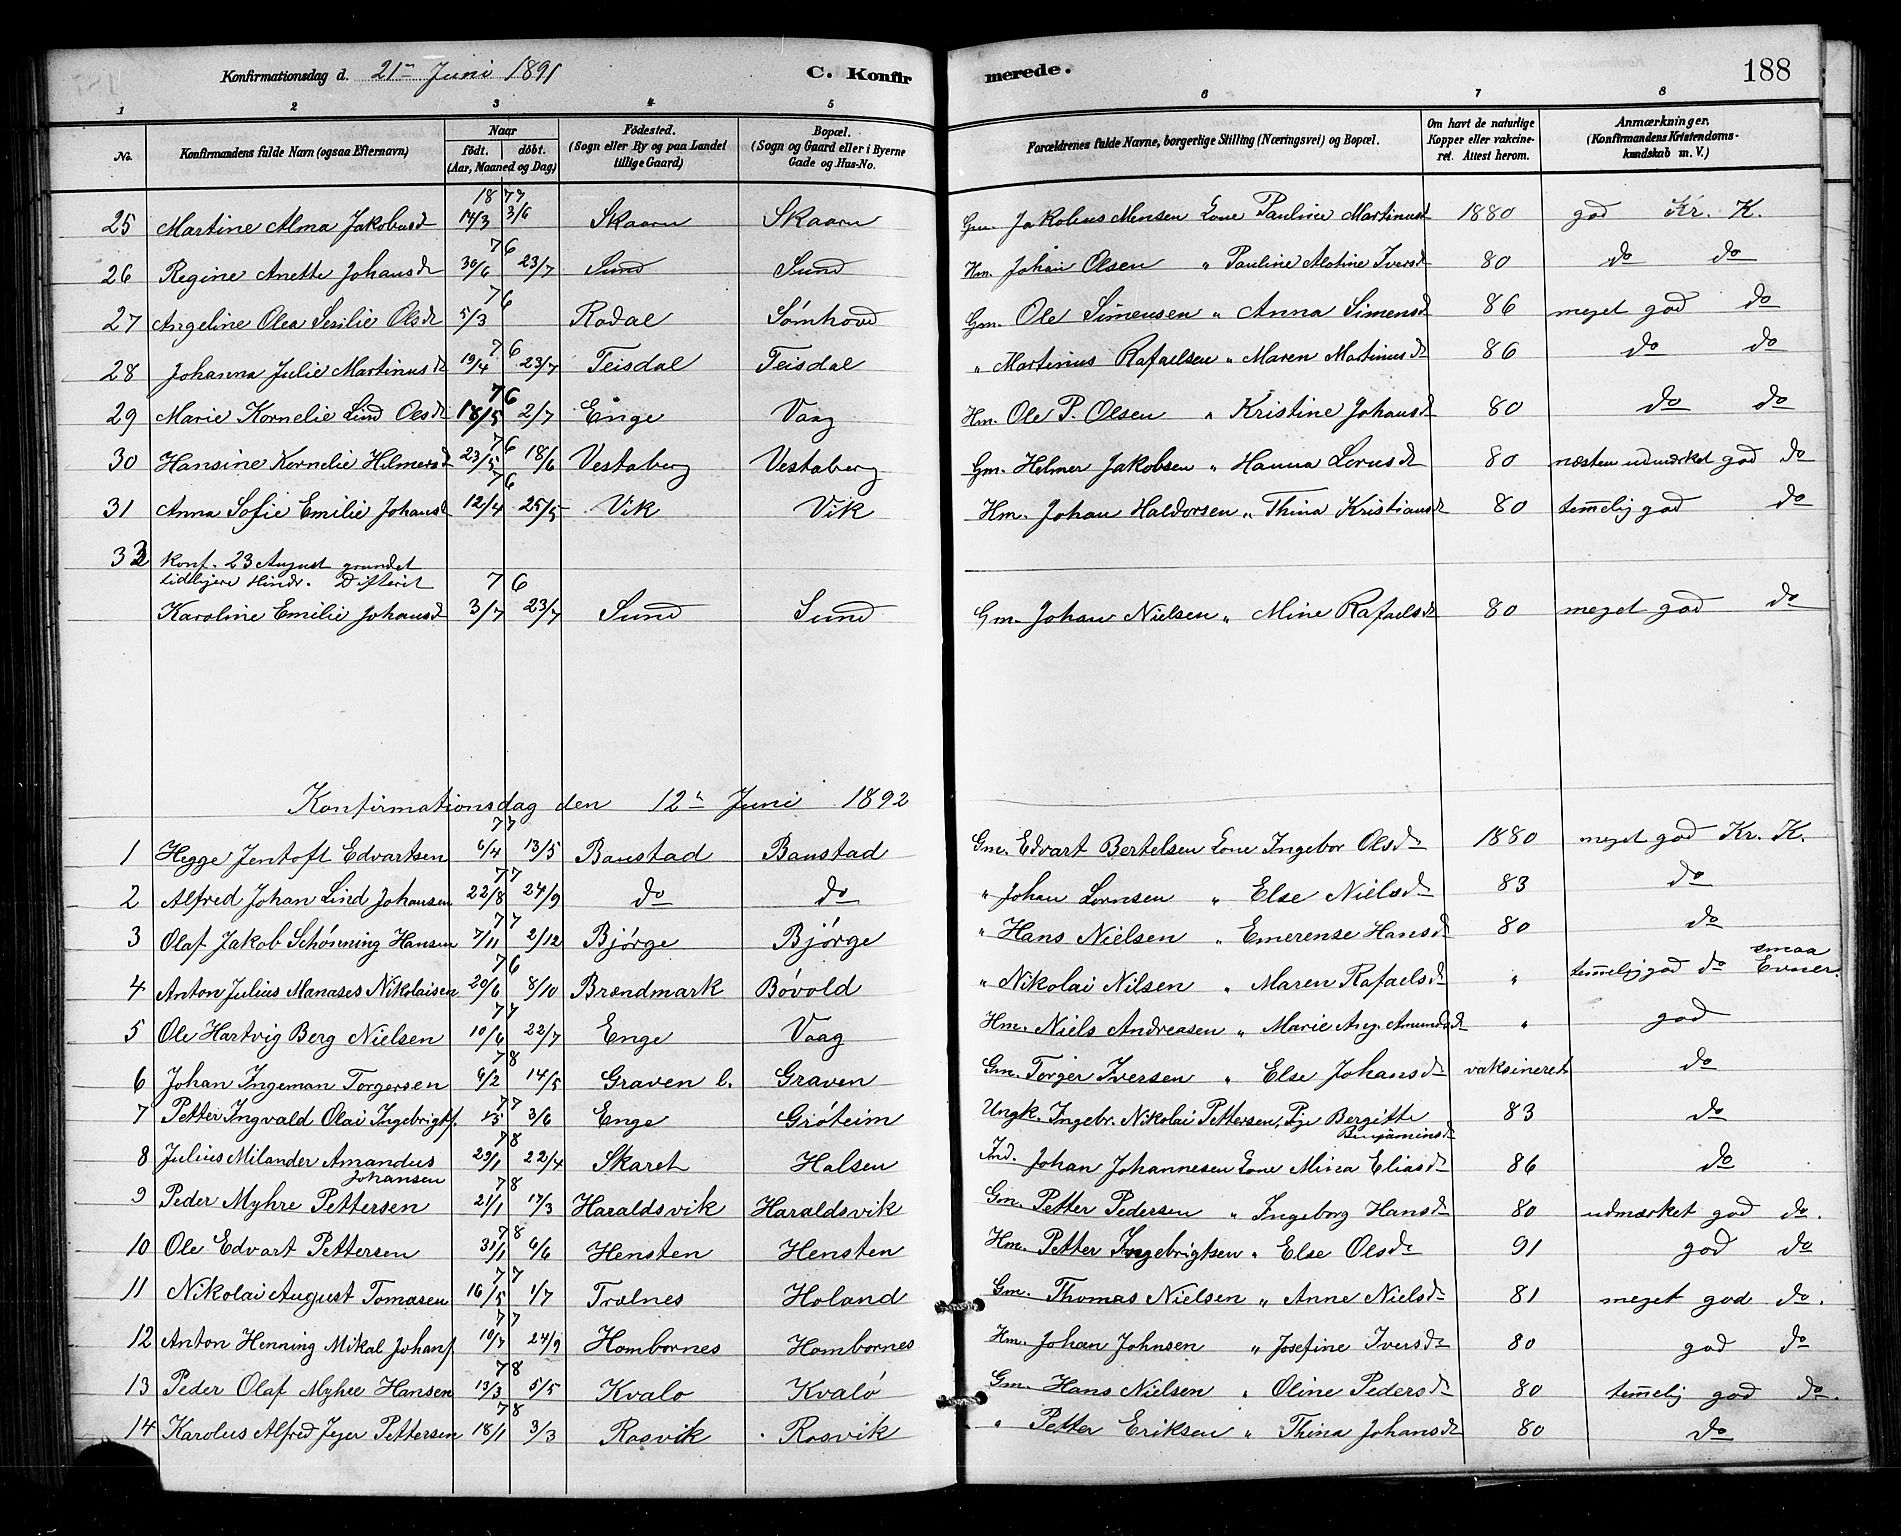 Konfirmationsdag d. 21de Juni 1891 C. Konfirmerede. 188
1 2 3 4 5 6 7 8
No. Konfirmandens fulde Navn (ogsaa Efternavn) Naar födt. döbt. (Aar, Maaned og Dag) Födested. (Sogn eller By og paa Landet tillige Gaard) Bopæl. (Sogn og Gaard eller i Byerne Gade og Hus-No. Forældrenes fulde Navne, borgerlige Stilling (Næringsvei) og Bopæl. Om havt de naturlige Kopper eller vakcineret. Attest herom. Anmærkninger. (Konfirmandens Kristendomskundskab m. V.)
18 77
25 Martine Alma Jakobusd 14/3 3/6 Skaarn Skaarn Gm. Jakobus Mensen Kone Pauline Martinusd 1880 god Kr. K.
76
26 Regine Anette Johansd 30/6 23/7 Sund Sund Hm. Johan Olsen " Pauline Alotine Iversd 80 do do
76
27 Angeline Olea Sesilie Olsd 5/3 Rodal Sømhovd Gm. Ole Simensen " Anna Simensd 86 meget god do
76
28 Johanna Julie Martinusd 19/4 23/7 Teisdal Teisdal " Martinus Rafaelsen " Maren Martinusd 86 do do
76
29 Marie Kornelie Lind Olsd 18/5 2/7 Enge Vaag Hm. Ole P. Olsen " Kristine Johansd 80 do do
76
30 Hansine Kornelie Hilmersd 23/5 18/6 Vestaberg Vestaberg Gm. Helmer Jakobsen " Hanna Lornsd 80 næsten udmærket god do
76
31 Anna Sofie Emilie Johansd 12/4 25/5 Vik Vik Hm. Johan Haldorsen " Thina Kristiansd 80 temmelig god do
32 Konf. 23 August grundet
tidligere Hindr. Difterit 76
Karoline Emilie Johansd 3/7 23/7 Sund Sund Gm. Johan Nielsen " Mine Rafaelsd 80 meget god do
Konfirmationsdag den 12te Juni 1892
77
1 Hegge Jentoft Edvartsen 6/4 13/5 Baustad Baustad Gm. Edvart Bertelsen Kone Ingebor Olsd 1880 meget god Kr. K.
77
2 Alfred Johan Lind Johansen 22/8 24/9 do do " Johan Lornsen " Else Nielsd 83 do
77
3 Olaf Jakob Schönning Hansen 7/11 2/12 Bjørge Bjørge " Hans Nielsen " Emerense Hansd 80 do
76
4 Anton Julius Manases Nikolaisen 20/6 8/10 Brændmark Bøvold " Nikolai Nilsen " Maren Rafaelsd " temmelig god do smaa Evner.
77
5 Ole Hartvig Berg Nielsen 10/6 22/7 Enge Vaag Hm. Niels Andreasen " Marie Aug. Amundsd " god
78
6 Johan Ingeman Torgersen 6/2 14/5 Graven l. Graven Gm. Torger Iversen " Else Johansd vaksineret do
77
7 Petter Ingvald Olai Ingebrigts. 3/6 Enge Grøteim Ungk. Ingebr. Nikolai Pettersen, Pige Bergitte Benjaminsd 83 do
78
8 Julius Milander Amandus Johansen 29/1 22/4 Skaret Halsen Ind. Johan Johannesen Kone Mina Eliasd 86 do
78
9 Peder Myhre Pettersen 21/1 17/3 Haraldsvik Haraldsvik Gm. Petter Pedersen " Ingeborg Hansd 80 udmærket god do.
78
10 Ole Edvart Pettersen 31/1 6/6 Hensten Hensten Hm. Petter Ingebrigtsen " Else Olsd 91 god do
77
11 Nikolai August Tomasen 16/5 1/7 Trælnes Holand Gm. Thomas Nielsen " Anne Nielsd 81 meget god do.
77
12 Anton Henning Mikal Johans. 10/7 24/9 Hombornes Hombornes Hm. Johan Johnsen " Josefine Iversd 80 god do
78
13 Peder Olaf Myhre Hansen 13/3 5/5 Kvalø Kvalø Gm. Hans Nielsen " Oline Pedersd 80 temmelig god do.
78
14 Karolus Alfred Jeger Pettersen 18/1 3/3 Rosvik Rosvik " Petter Eriksen " Thina Johansd 80 do